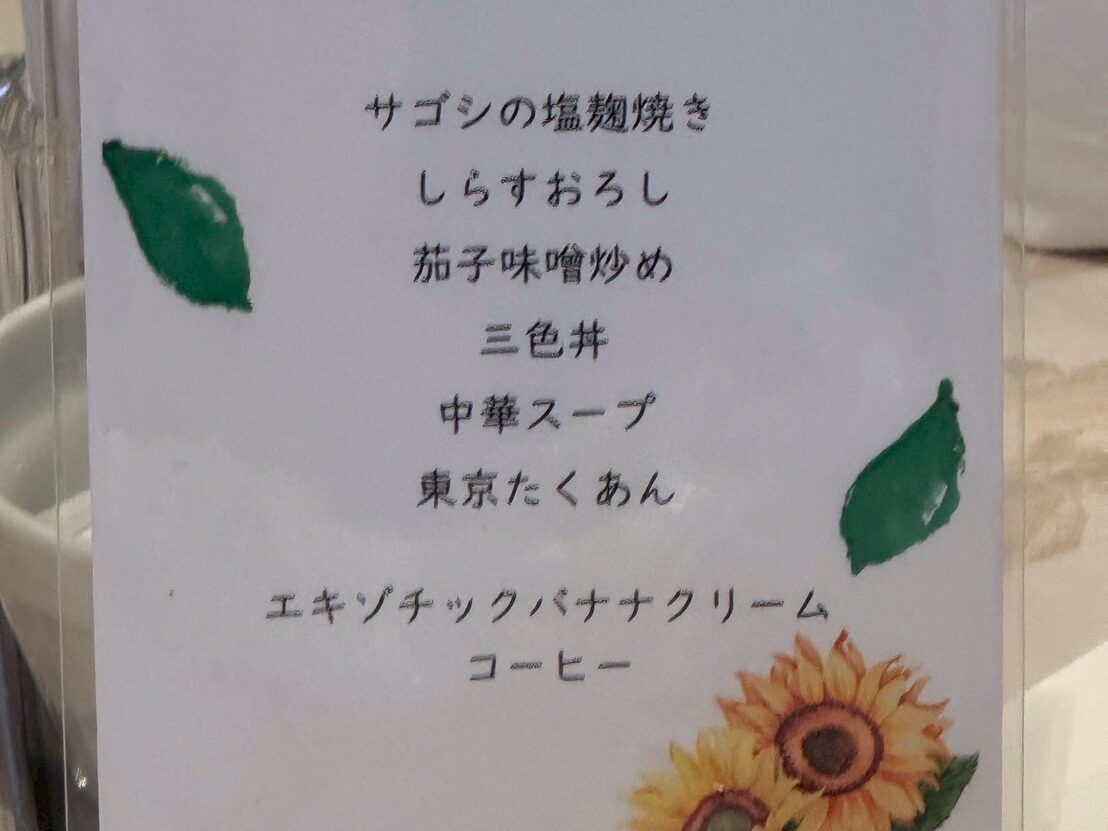 サゴシの塩麹焼き
しらすおろし
茄子味噌炒め
三色丼
中華スープ
東京たくあん
エキゾチックバナナクリーム
コーヒー